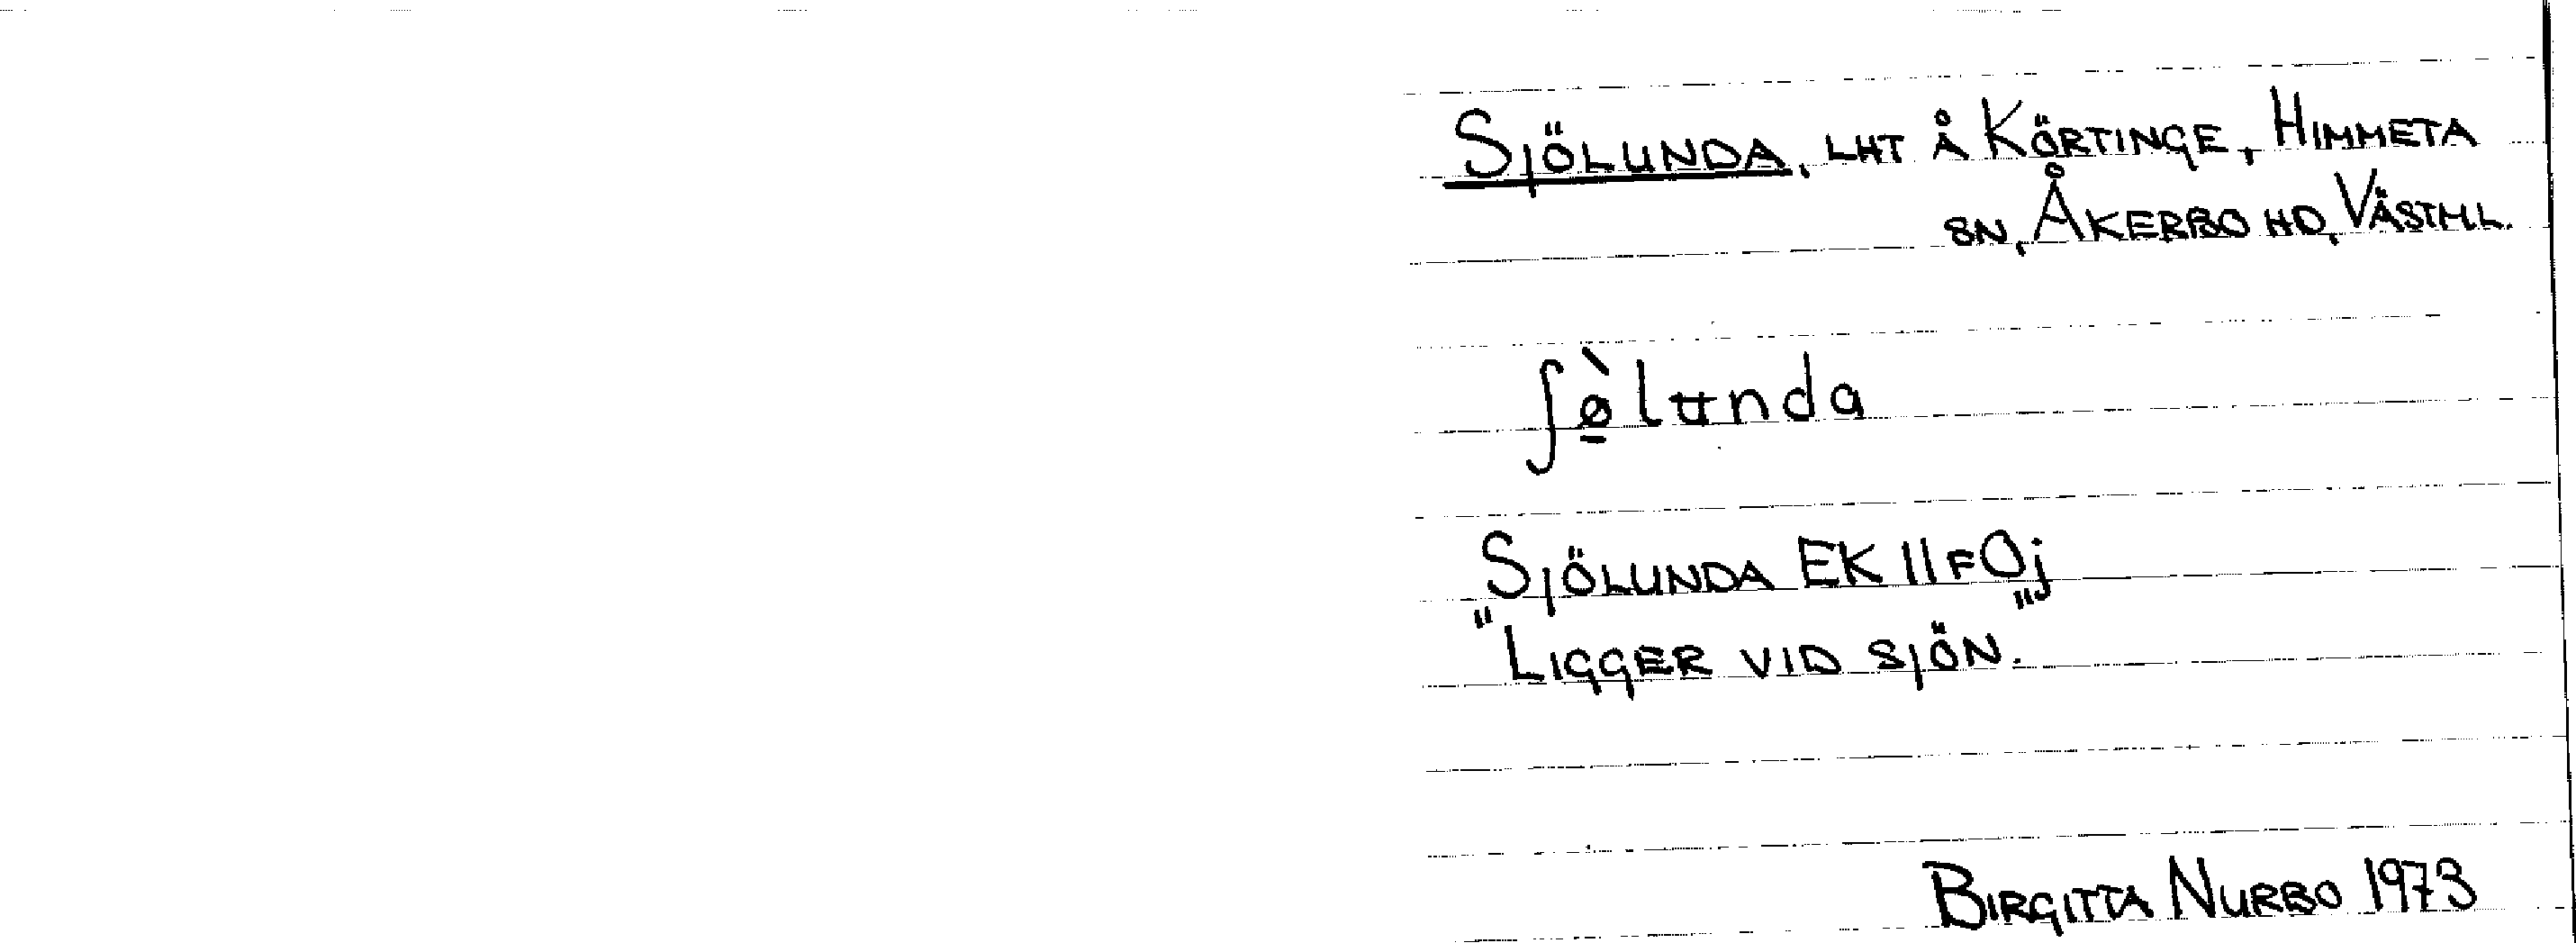 SJÖLUNDA, LHT Å KÖRTINGE, HIMMETA
SN, ÅKERBO HD, VÄSTML.
ʃø̀lunda
SJÖLUNDA EK 11F0j
"LIGGER VID SJÖN."
BIRGITTA NURBO 1973